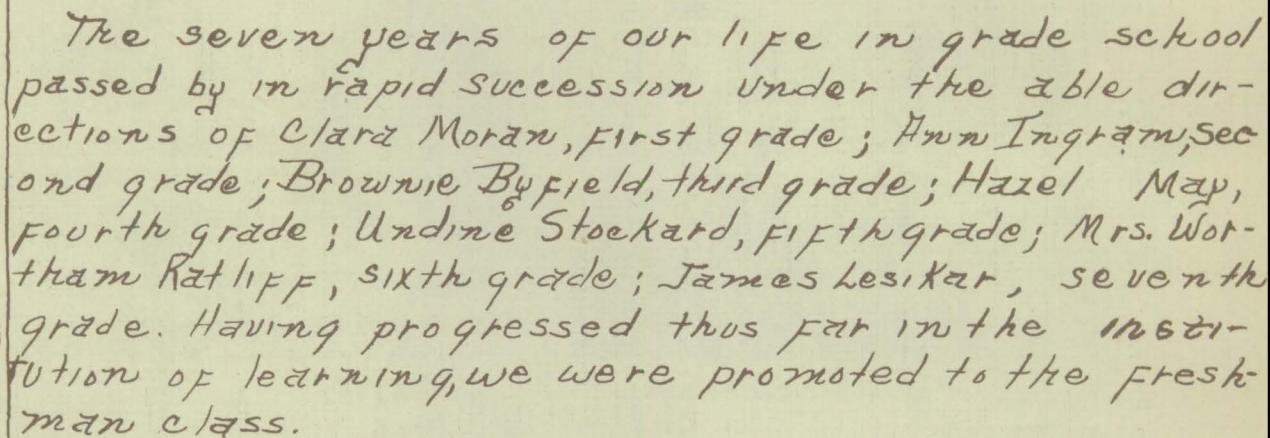 The seven years of our life in grade school
passed by in rapid succession under the able dir-
ections of Clara Moran, first grade; Ann Ingram, sec
ond grade; Brownie Byfield, third grade; Hazel May,
fourth grade; Undine Stockard, fifth grade; Mrs. Wor-
tham Ratliff, sixth grade; James Lesikar, seventh
grade. Having progressed thus far in the insti-
tution of learning, we were promoted to the fresh-
man class.